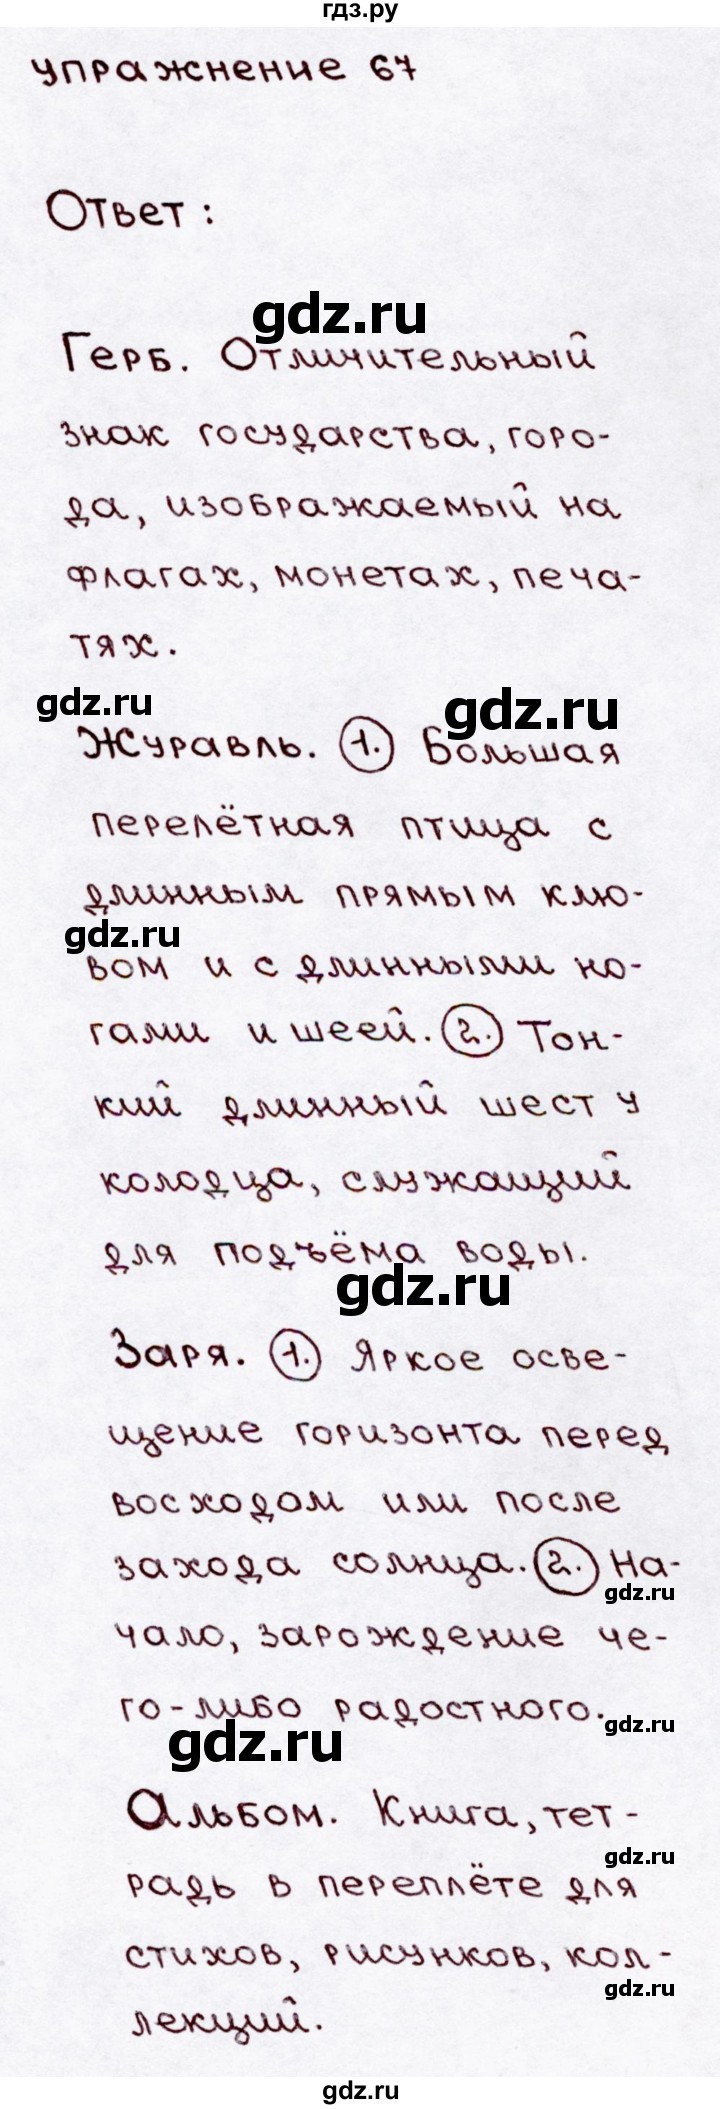 гдз.ру
упражнение 67
Ответ:
gdz.ru
Герб. Отличительный
знак государства, горо-
да, изображаемый на
флагах, монетах, печа-
тях.
gdz.ru
gdz.ru
Журавль. 1. Большая
перелётная птица с
длинным прямым клю-
gdz.ru
вом и с длинными но-
гами и шеей. 2. Тон-
кий длинный шест у
колодца, служащий
для подъёма воды.
gdz.ru
Заря. 1. Яркое осве-
щение горизонта перед
восходом или после
захода солнца. 2. На-
gdz.ru
чало, зарождение че-
го-либо радостного.
gdz.ru
gdz.ru
Альбом. Книга, тет-
gdz.ru
радь в переплёте для
стихов, рисунков, кол-
gdz.ru
лекций.
gdz.ru